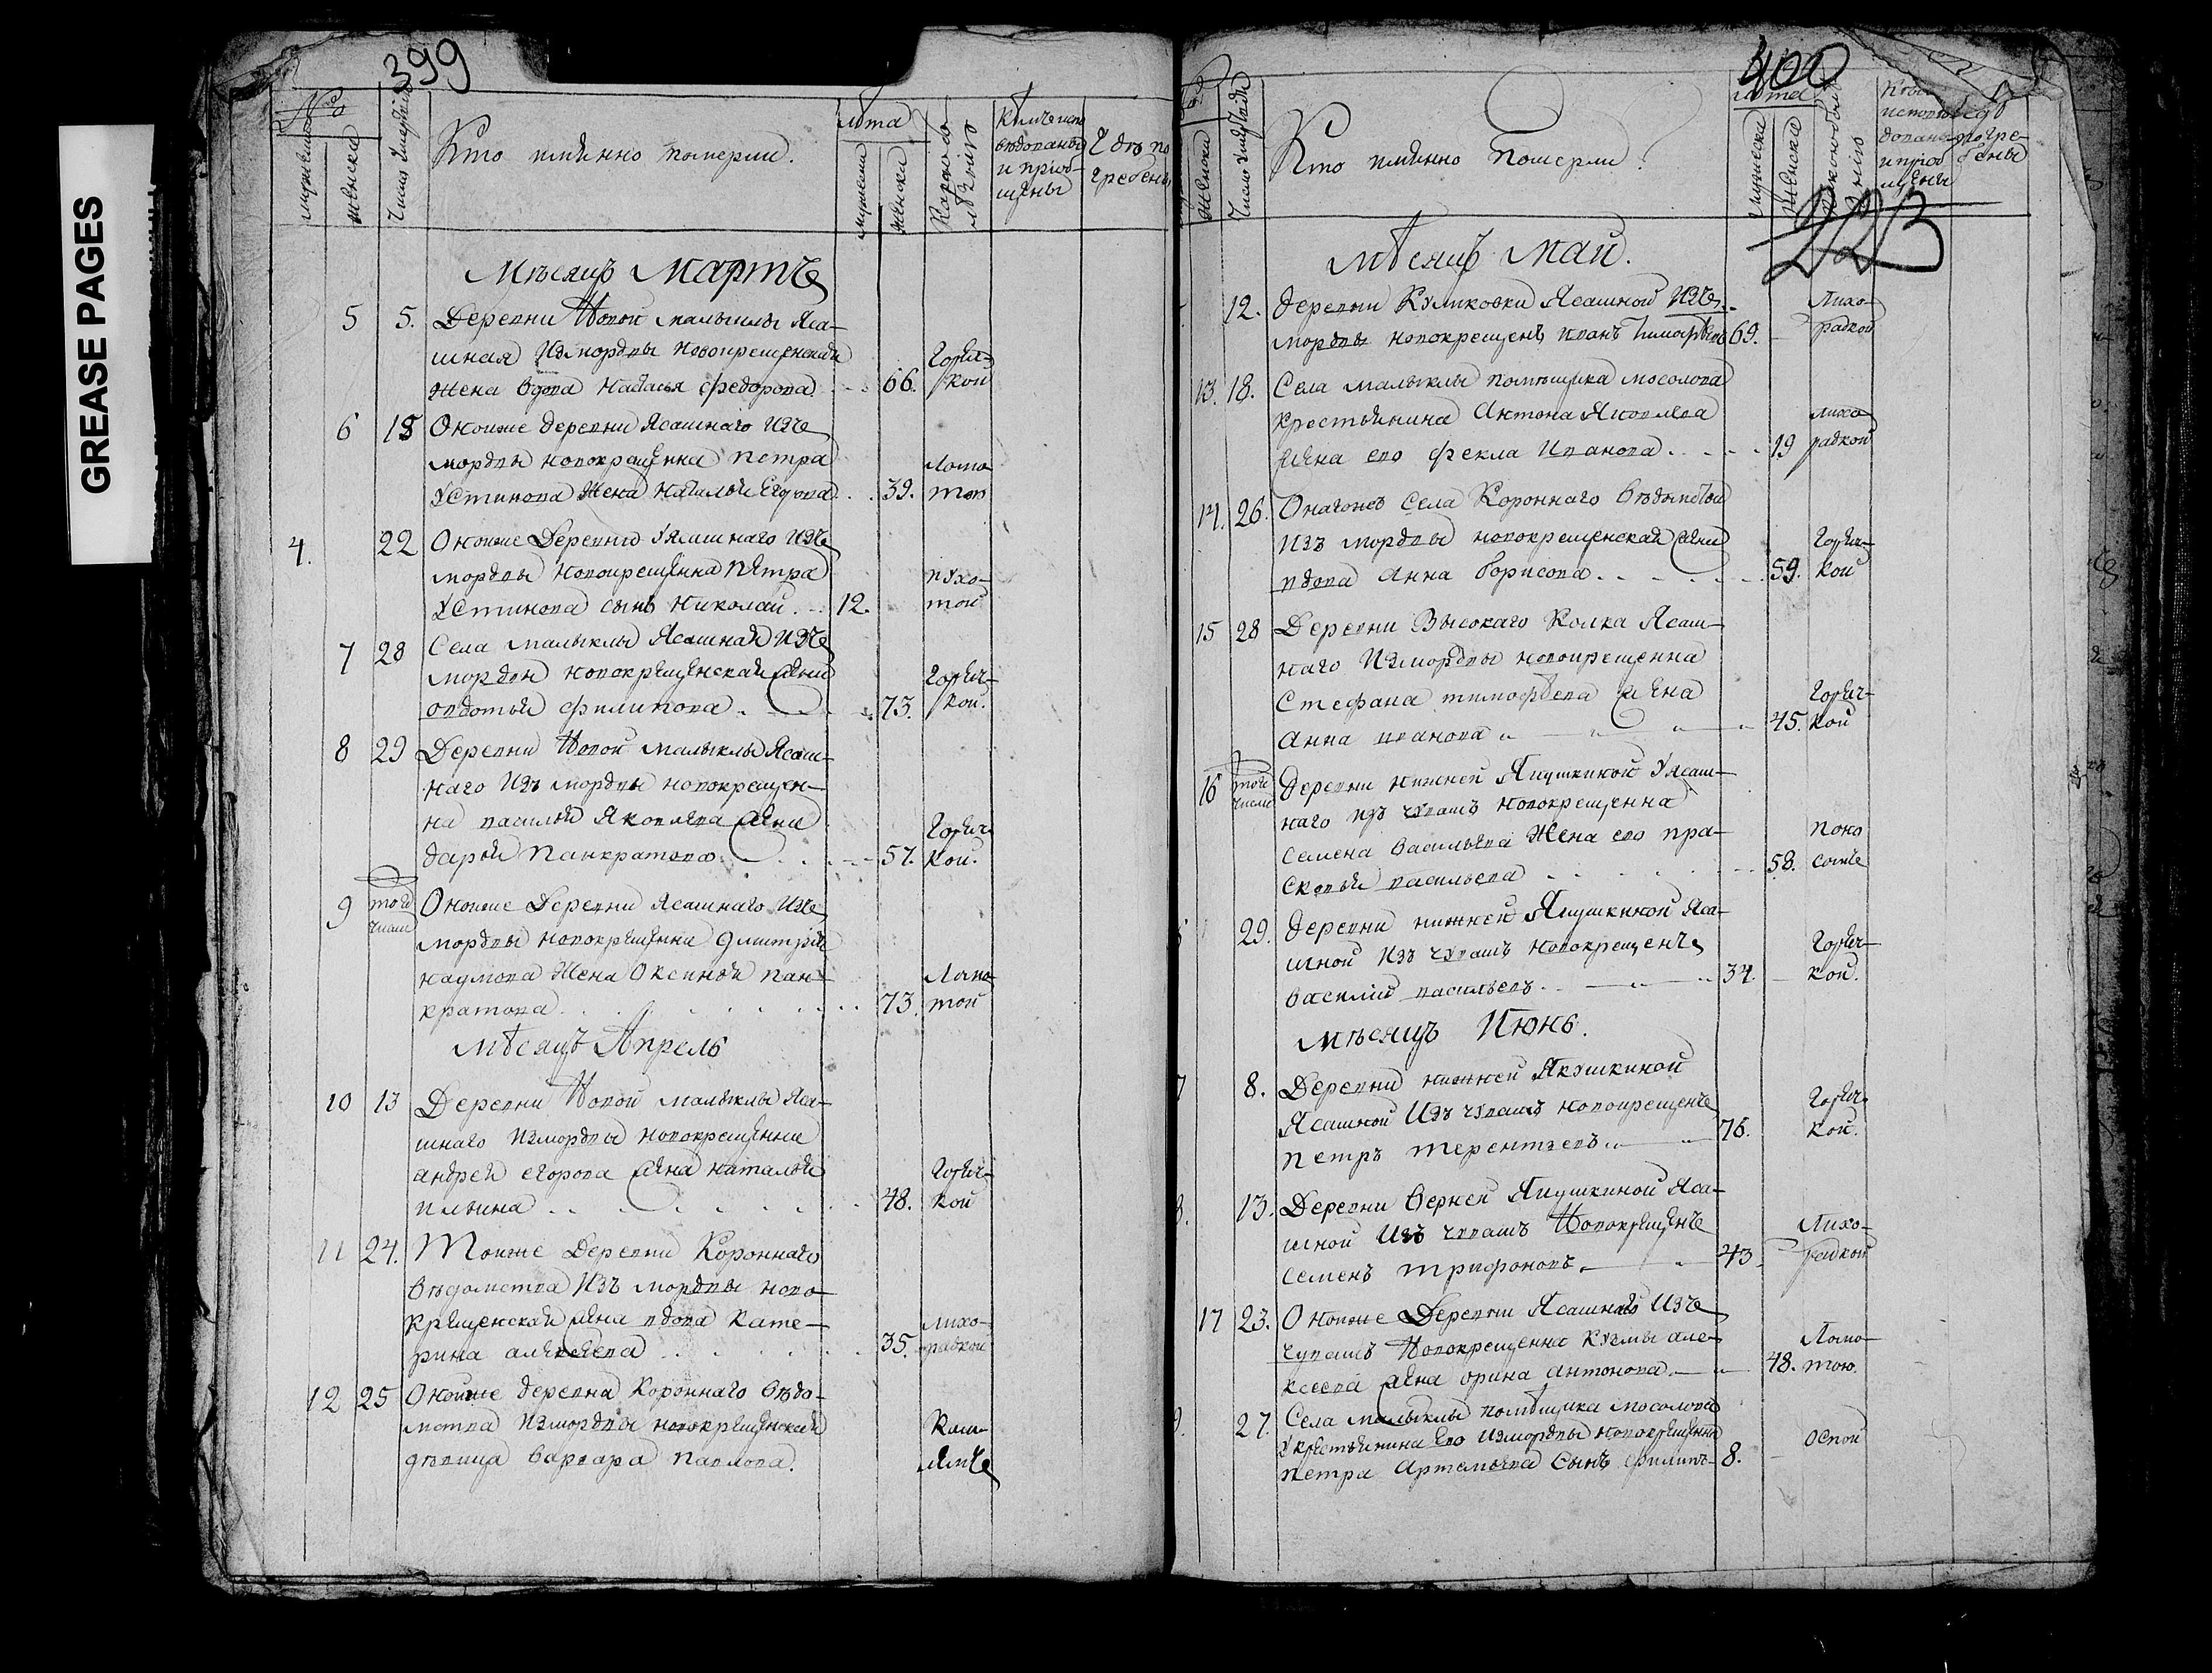 GREASE PAGES
399
№
мужеска
женска
Число умертвія
Кто имянно померли.
лѣта
мужеска
женска
Какою болѣзнію
Кѣмъ испо
вѣдованы
и приоб-
щены
Гдѣ по
гребены
Мѣсяцъ Мартъ
5 5. Деревни Новой малыклы Яса-
шная Измордвы Новокрещенская
Жена вдова Настасья федорова 66. Горяч-
кой
6 18 Оноиже деревни Ясашнаго Изъ
мордвы новокрещенна петра
Устинова Жена Наталья Егорова 39. Ломо
тою
4. 22 Оноиже Деревни Уясашнаго Изъ
мордвы новокрещенна петра
Устинова сынъ николай. 12. пухо-
той
7 28 Села малыклы Ясашная Изъ
мордвы новокрещенская жена
овдотья филипова 73. Горяч-
кой.
8 29 Деревни Новой малыклы Ясаш-
наго Изъ мордвы новокрещен-
на василья Яковлева жена
дарья панкратова 57. Горяч
кой.
9 того числа Оноиже Деревни Ясашнаго Изъ
мордвы новокрещенна дмитрія
наумова Жена Оксинья пан-
кратова 73. Ломо
той
мѣсяцъ Апрель
10 13 Деревни Новой малыклы Яса-
шнаго Измордвы новокрещенна
андрей егорова жена наталья
ильина 48. Горяч-
кой
11 24. Тоиже Деревни Короннаго
вѣдомства Изъ мордвы ново-
крещенская жена вдова кате-
рина алексеева 35. лихо-
радкой
12 25 Оноиже деревни короннаго вѣдо-
мства Измордвы новокрещенская
дѣвица варвара павлова. Каш-
лемъ
400
женска
Число умертвія
Кто имянно померли.
лѣта
мужеска
женска
223
мѣсяцъ май.
12. деревни Куликовки Ясашной Изъ
мордвы новокрещенъ иванъ тимофѣевъ 69. Лихо-
радкой
13. 18. Села малыклы помѣщика мосолова
крестьянина Антона Яковлева
жена его фекла Иванова 19 лихо
радкой
14. 26. Онагожъ Села Короннаго вѣдомства
Изъ мордвы новокрещенская жена
вдова Анна борисова 59. Горяч-
кой
15 28 Деревни Высокаго Колка Ясаш-
наго Измордвы новокрещенна
Стефана тимофѣева жена
Анна иванова 45. Горяч-
кой
16 того числа деревни нижней Якушкиной Уясаш-
наго изъ чувашъ новокрещенна
семена васильева Жена его пра-
сковья васильева 58. поно
сомъ
29. деревни нижней Якушкиной Яса-
шной Изъ чувашъ новокрещенъ
василій васильевъ 34. Горяч-
кой.
мѣсяцъ Июнь.
8. Деревни нижней Якушкиной
Ясашной Изъ чувашъ новокрещенъ
петръ терентьевъ 76. Горяч-
кой.
13. Деревни верней Якушкиной Яса-
шной Изъ чувашъ Новокрещенъ
семенъ трифоновъ 43 Лихо-
радкой
17 23. Оноиже Деревни Ясашнаго Изъ
чувашъ Новокрещенна кузмы але-
ксеева жена орина антонова 48. Ломо-
тою.
27. Села малыклы помѣщика мосолова
Укрестьянина его Измордвы новокрещенна
петра Артемьева сынъ филипъ 8. оспой